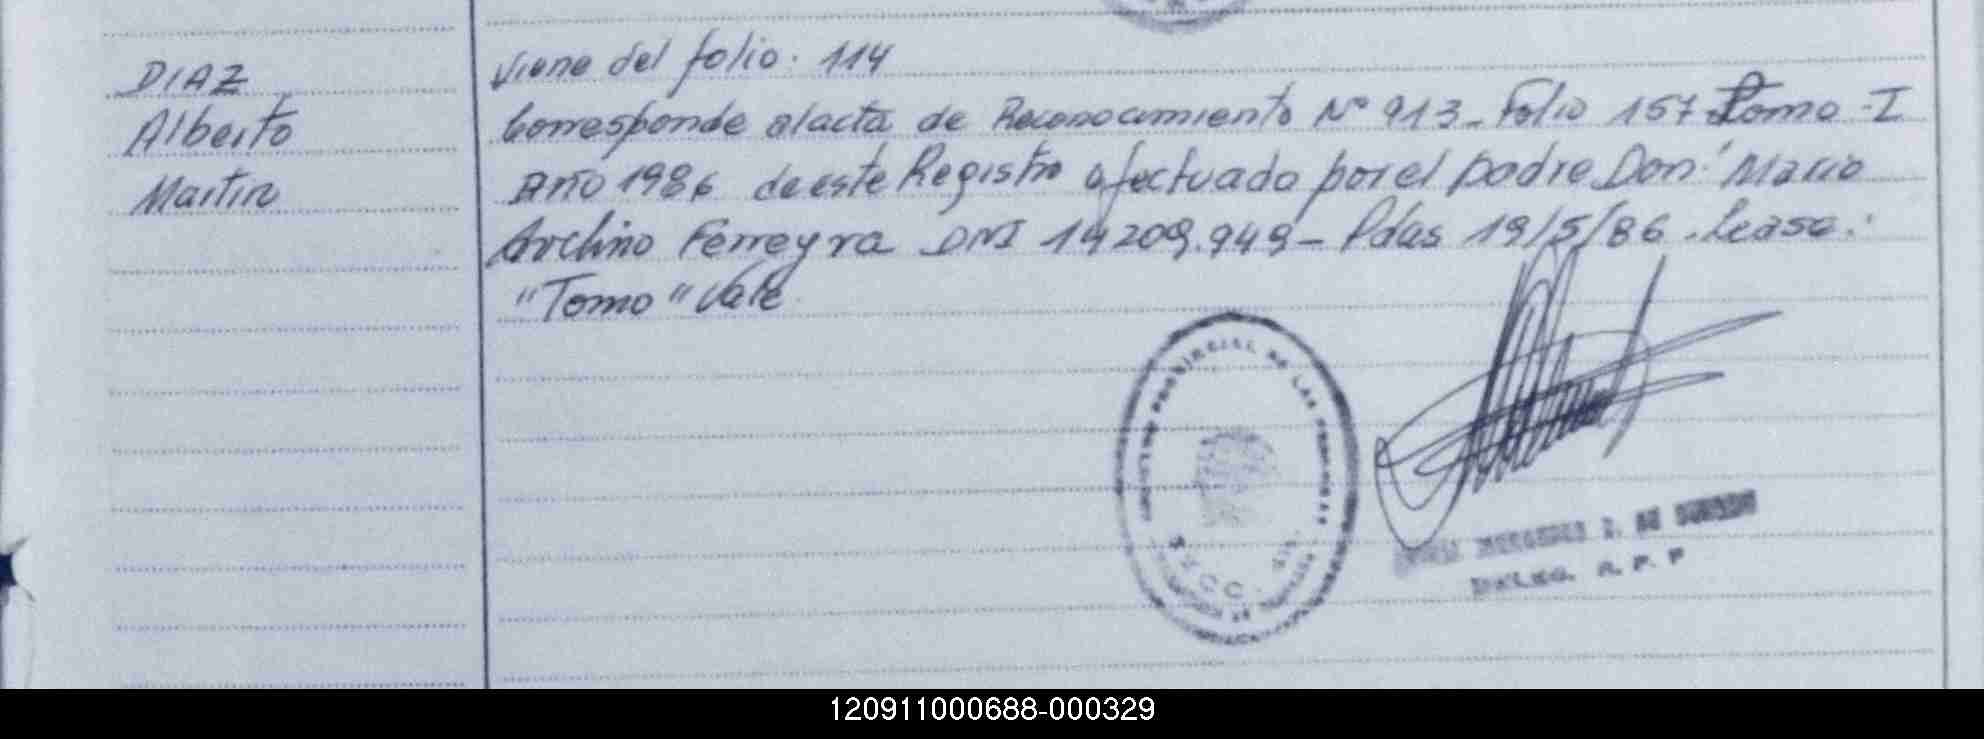 DIAZ
Alberto
Martin
Viene del folio. 114
Corresponde al acta de Reconocimiento Nº 913_ Folio 157 Tomo-I
Año 1986 de este Registro efectuado por el padre Don: Mario
Avelino Ferreyra DNI 14209.949_ Pdas 19/5/86. Lease:
"Tomo" Vale
PROVINCIAL DE LAS PERSONAS
DELEG. R. P. P
120911000688-000329